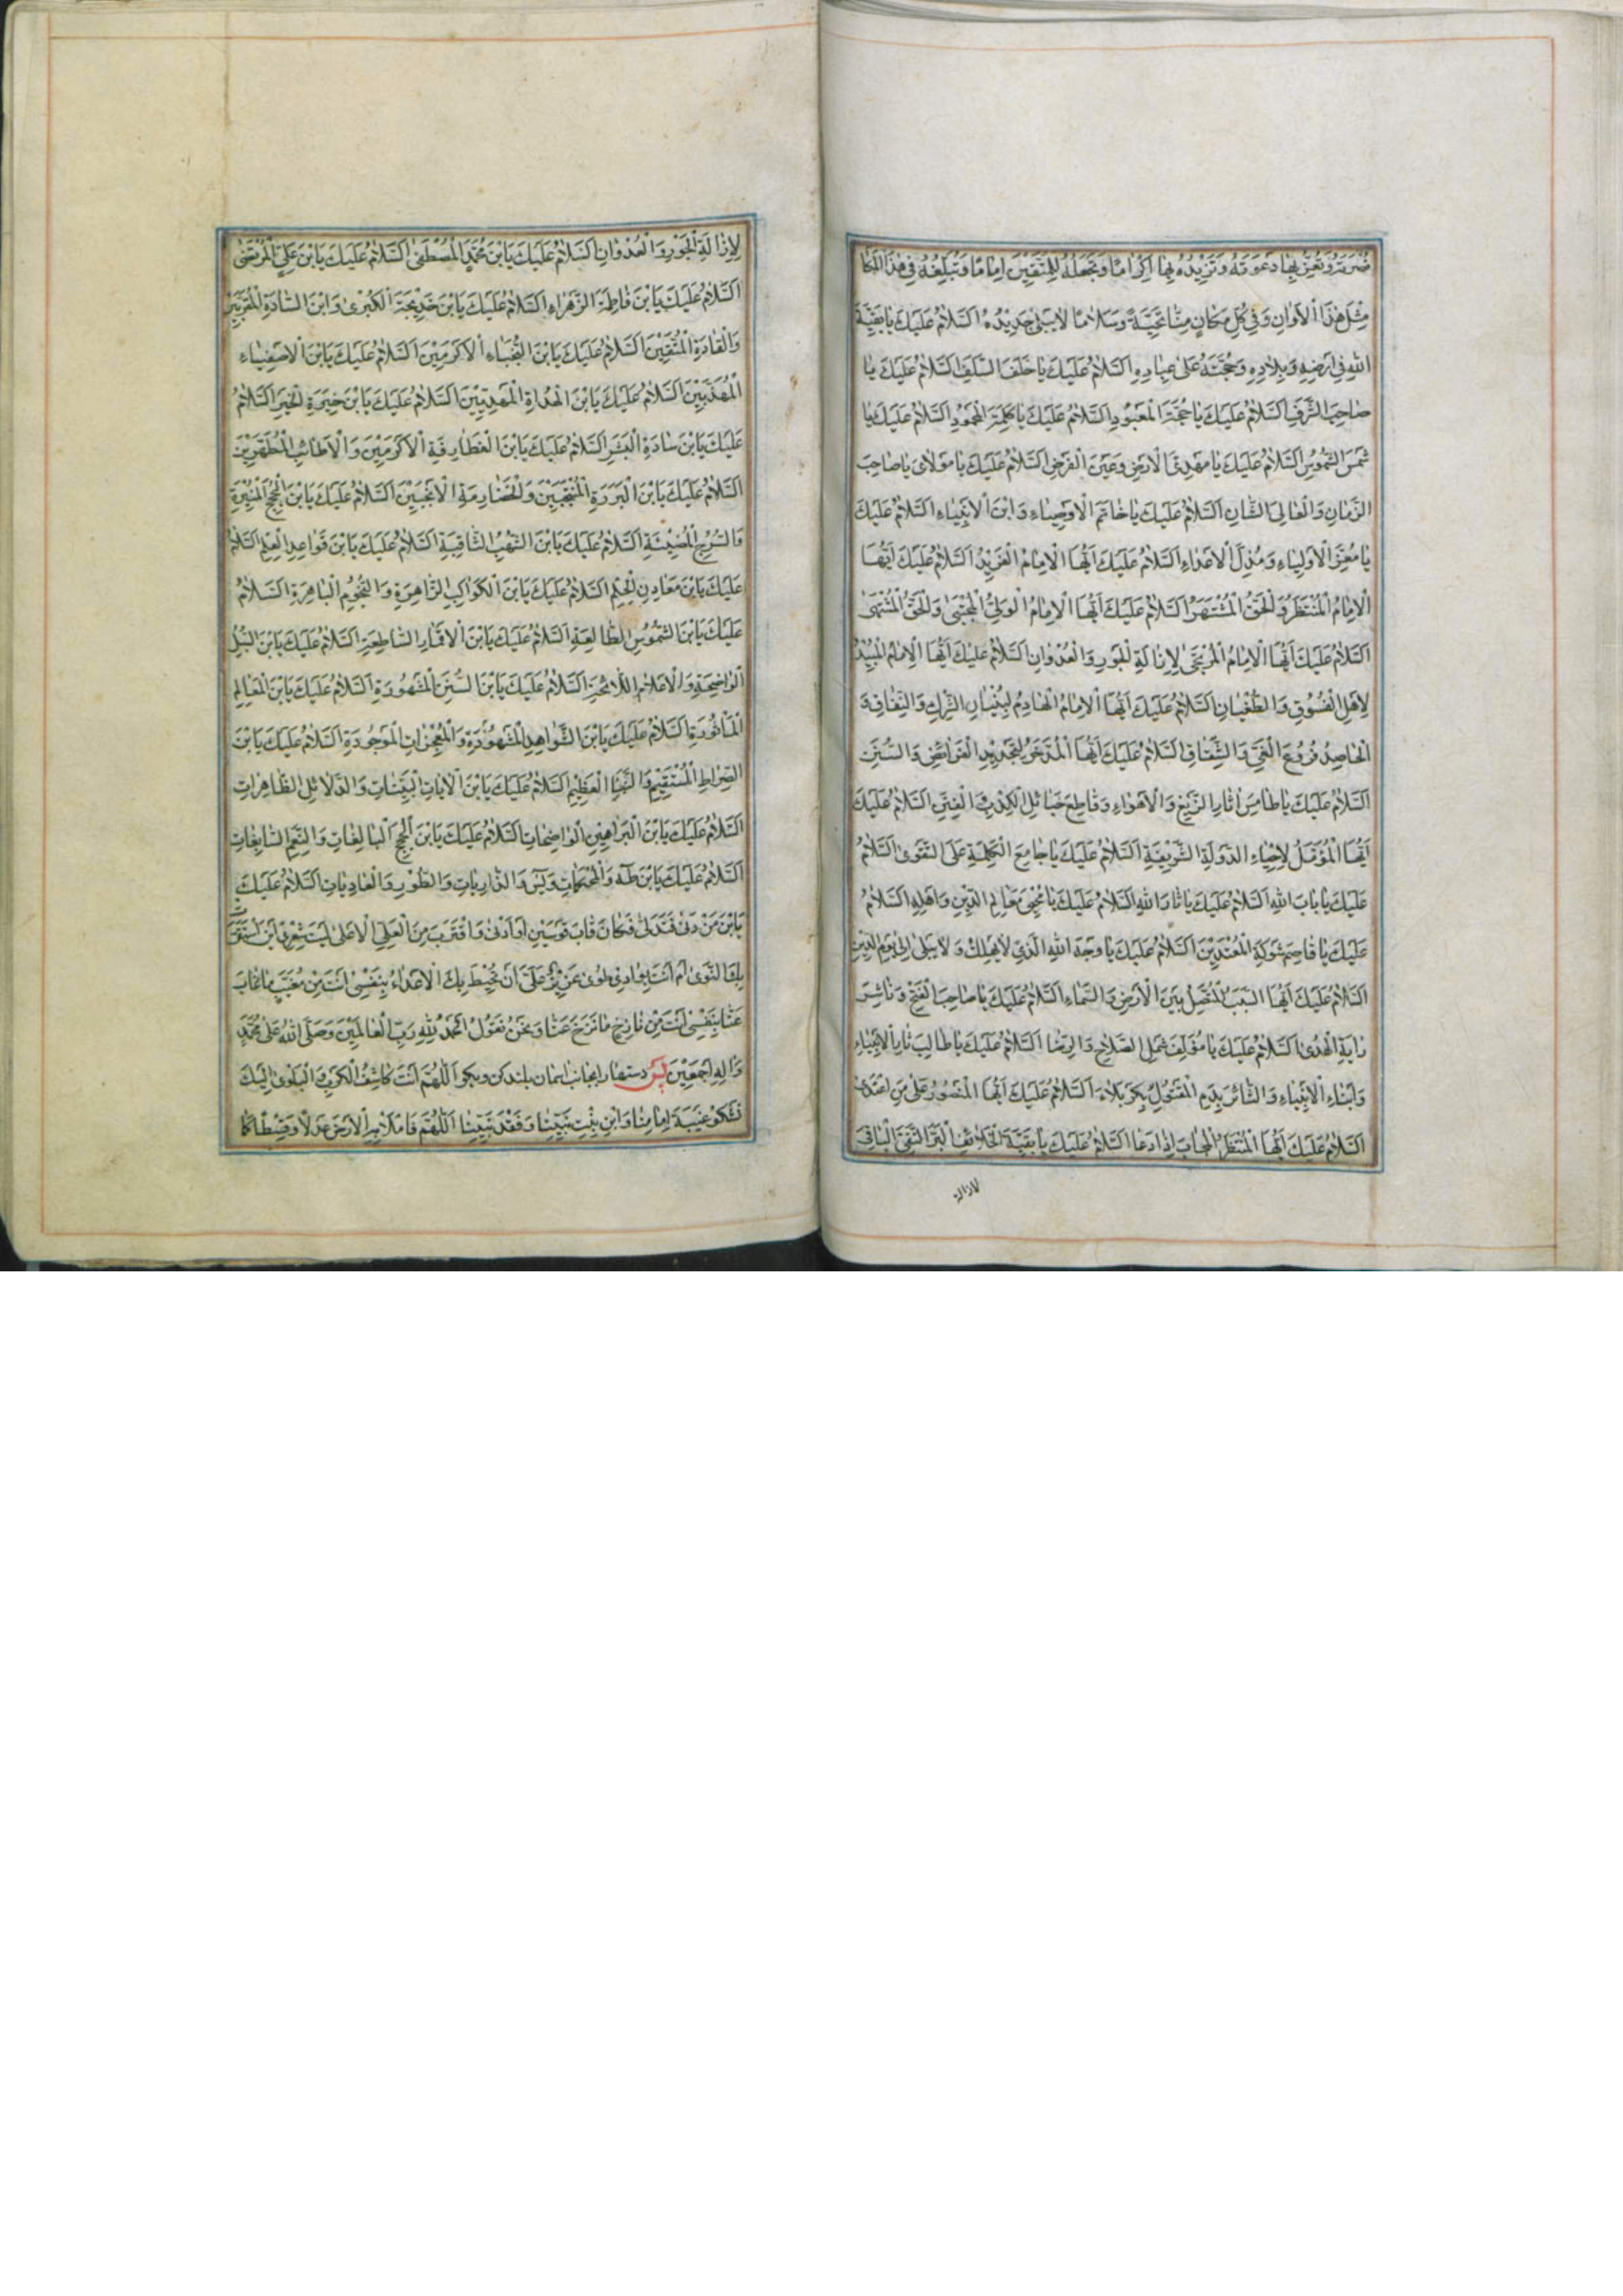 نصرته وتعز بها دعوته وتزيده بها اكراما وتجعله للمتقين اماما وتبلغه في هذا المكا
مثل هذا الاوان وفي كل مكان منا تحية وسلاما لا يبلى جديده السلام عليك يا بقية
الله في ارضه وبلاده وحجته على عباده السلام عليك يا خلف السلف السلام عليك يا
صاحب الشرف السلام عليك يا حجة المعبود السلام عليك يا كلمة المحمود السلام عليك يا
شمس الشموس السلام عليك يا مهدي الارض وعين الفرض السلام عليك يا مولاي يا صاحب
الزمان والعالي الشان السلام عليك يا خاتم الاوصياء وابن الانبياء السلام عليك
يا معز الاولياء ومذل الاعداء السلام عليك ايها الامام الفريد السلام عليك ايها
الامام المنتظر والحق المشتهر السلام عليك ايها الامام الولي المجتبى والحق المنتهى
السلام عليك ايها الامام المرتجى لازالة الجور والعدوان السلام عليك ايها الامام المبيد
لاهل الفسوق والطغيان السلام عليك ايها الامام الهادم لبنيان الشرك والنفاق و
الحاصد فروع الغي والشقاق السلام عليك ايها المدخر لتجديد الفرائض والسنن
السلام عليك يا طامس اثار الزيغ والاهواء وقاطع حبائل الكذب والفتن السلام عليك
ايها المؤمل لاحياء الدولة الشريفة السلام عليك يا جامع الكلمة على التقوى السلام
عليك يا باب الله السلام عليك يا ثار الله السلام عليك يا محيي معالم الدين واهله السلام
عليك يا قاصم شوكة المعتدين السلام عليك يا وجه الله الذي لا يهلك ولا يبلى الى يوم الدين
السلام عليك ايها السبب المتصل بين الارض والسماء السلام عليك يا صاحب الفتح وناشر
راية الهدى السلام عليك يا مؤلف شمل الصلاح والرضا السلام عليك يا طالب ثار الانبياء
وابناء الانبياء والثائر بدم المقتول بكربلاء السلام عليك ايها المنصور على من اعتدى
السلام عليك ايها المنتظر المجاب اذا دعا السلام عليك يا بقية الخلائف البر التقي الباقي
لازالة
لازالة الجور والعدوان السلام عليك يا بن محمد المصطفى السلام عليك يا بن علي المرتضى
السلام عليك يا بن فاطمة الزهراء السلام عليك يا بن خديجة الكبرى وابن السادة المقربين
والقادة المتقين السلام عليك يا بن النجباء الاكرمين السلام عليك يا بن الاصفياء
المهذبين السلام عليك يا بن الهداة المهديين السلام عليك يا بن خيرة الخير السلام
عليك يا بن سادة البشر السلام عليك يا بن الغطارفة الاكرمين والاطائب المطهرين
السلام عليك يا بن البررة المنتجبين والخضارمة الانجبين السلام عليك يا بن الحجج المنيرة
والسرج المضيئة السلام عليك يا بن الشهب الثاقبة السلام عليك يا بن قواعد العلم السلام
عليك يا بن معادن الحلم السلام عليك يا بن الكواكب الزاهرة والنجوم الباهرة السلام
عليك يا بن الشموس الطالعة السلام عليك يا بن الاقمار الساطعة السلام عليك يا بن السبل
الواضحة والاعلام اللائحة السلام عليك يا بن السنن المشهورة السلام عليك يا بن المعالم
المأثورة السلام عليك يا بن الشواهد المشهودة والمعجزات الموجودة السلام عليك يا بن
الصراط المستقيم والنبإ العظيم السلام عليك يا بن الايات البينات والدلائل الظاهرات
السلام عليك يا بن البراهين الواضحات السلام عليك يا بن الحجج البالغات والنعم السابغات
السلام عليك يا بن طه والمحكمات ويس والذاريات والطور والعاديات السلام عليك
يا بن من دنى فتدلى فكان قاب قوسين او ادنى واقترب من العلي الاعلى ليت شعري اين استقرت
بك النوى ام انت بوادي طوى عزيز علي ان تحيط بك الاعداء بنفسي انت من مغيب ما غاب
عنا بنفسي انت من نازح ما نزح عنا ونحن نقول الحمد لله رب العالمين وصلى الله على محمد
واله اجمعين پس دستها را بجانب اسمان بلند كن وبكو اللهم انت كاشف الكرب والبلوى اليك
نشكو غيبة امامنا وابن بنت نبينا وفقد نبينا اللهم فاملا به الارض عدلا وقسطا كما